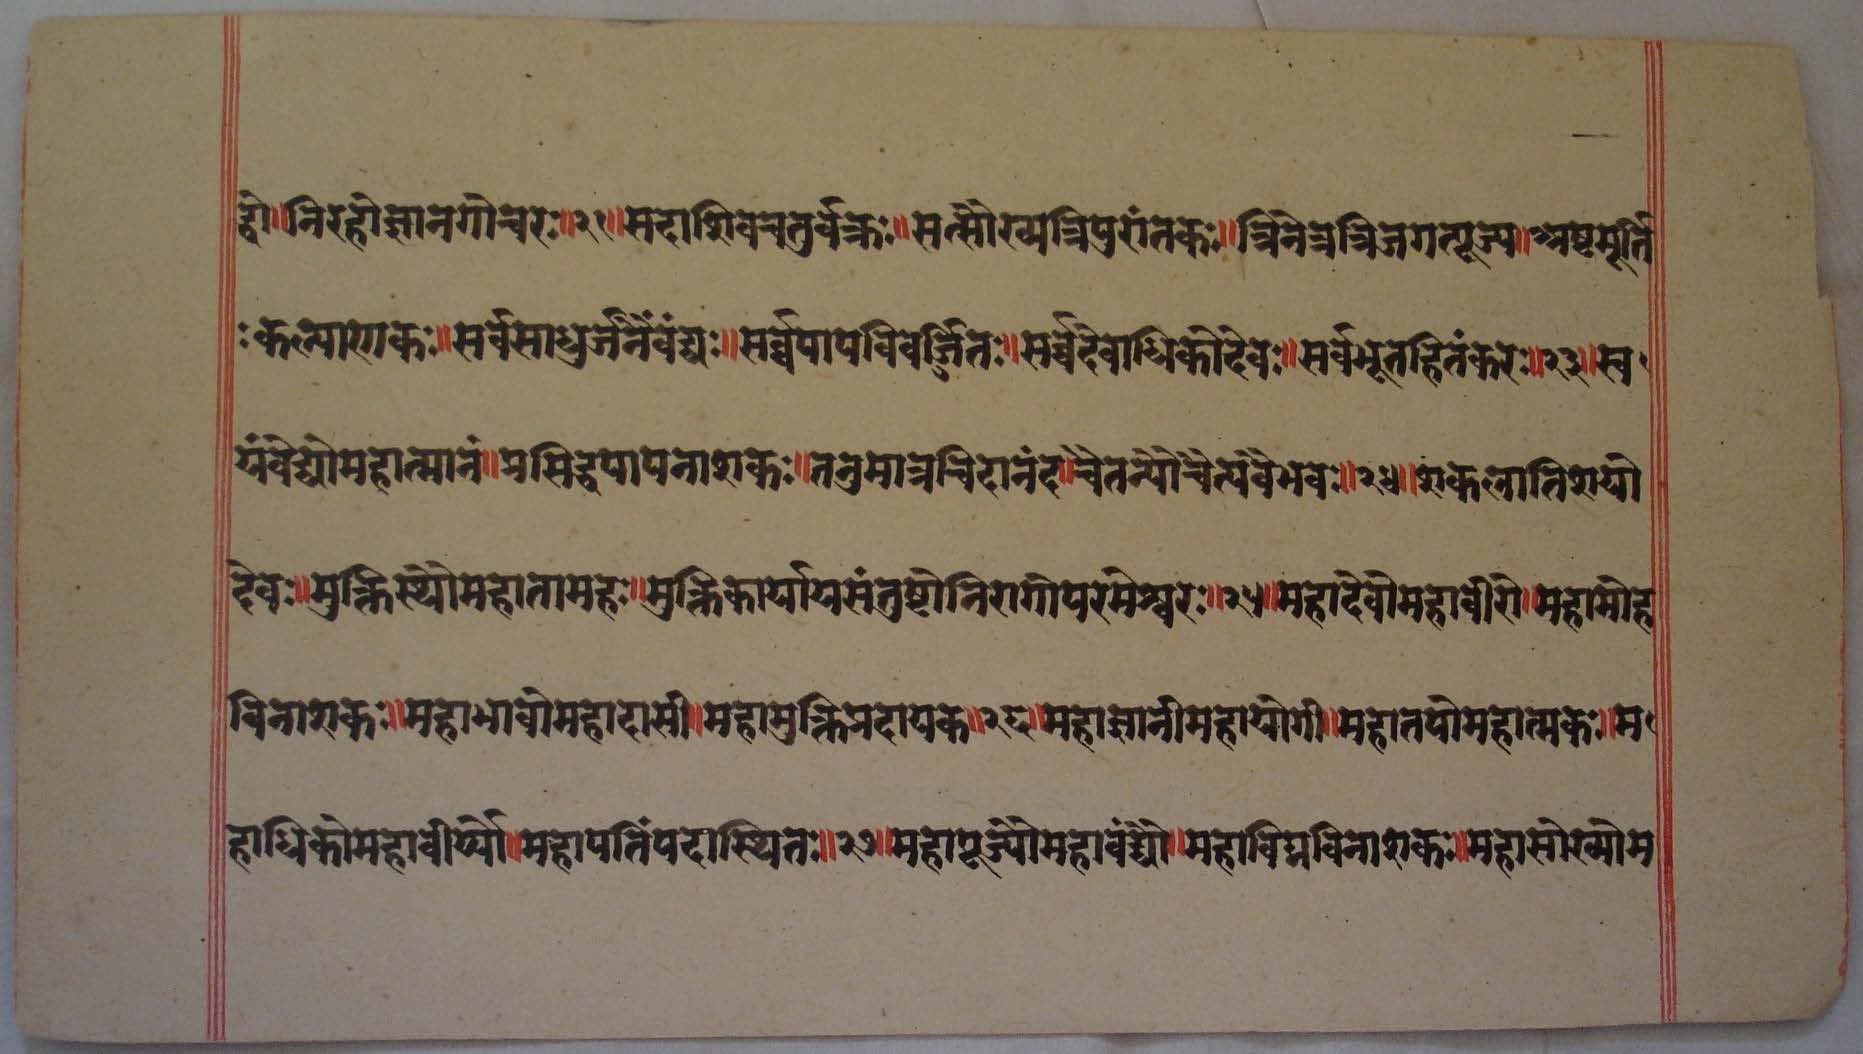 द्वो॥निरहोज्ञानगोचरः॥२१॥सदाशिवचतुर्वक्रः॥सत्सौख्यत्रिपुरांतकः॥त्रिनेत्रत्रिजगत्पूज्य॥अष्टमूर्ति
ःकल्याणकः॥सर्वसाधुर्जनैवंद्यः॥सर्व्वपापविवर्ज्जितः॥सर्व्वदेवाधिकोदेवः॥सर्वभूतहितंकरः॥२३॥स्व
यंवेद्योमहात्मानं॥प्रसिद्धपापनाशकः॥तनुमात्रचिदानंद॥चैतन्योचैत्यवैभवः॥२४॥शकलातिशयो
देवः॥मुक्तिस्थोमहातामहः॥मुक्तिकार्यायसंतुष्टोनिरागोपरमेश्वरः॥२५॥महादेवोमहावीरो॥महामोह
विनाशकः॥महाभावोमहादासी॥महामुक्तिप्रदायक॥२६॥महाज्ञानीमहायोगी॥महातपोमहात्मकः॥म
हाधिकोमहावीर्य्यो॥महापतिंपदास्थितः॥२७॥महापूज्योमहावंद्यो॥महाविघ्नविनाशकः॥महासौख्योम